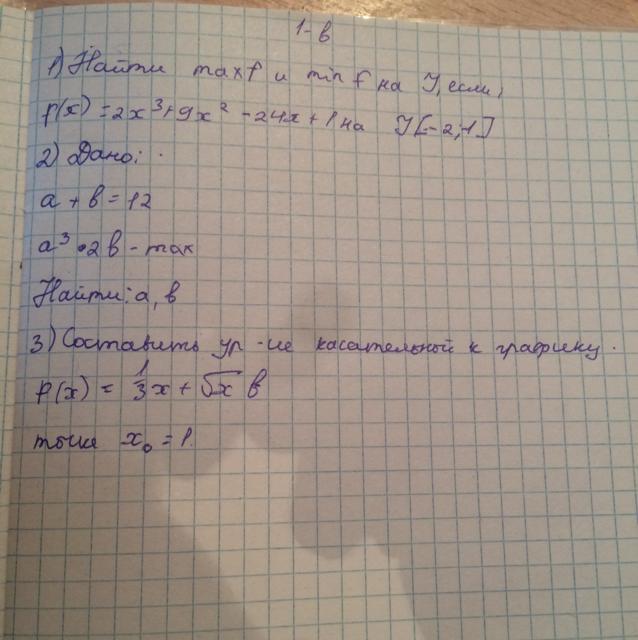 1-в
1) Найти maxf и minf на J, если,
f(x) = 2x³+9x² -24x+1 на J[-2,1]
2) Дано:
a + b = 12
a³ • 2b - max
Найти: a, b
3) Составить ур-ие касательной к графику.
f(x) = 1/3x + √x в
точке x₀ = 1.